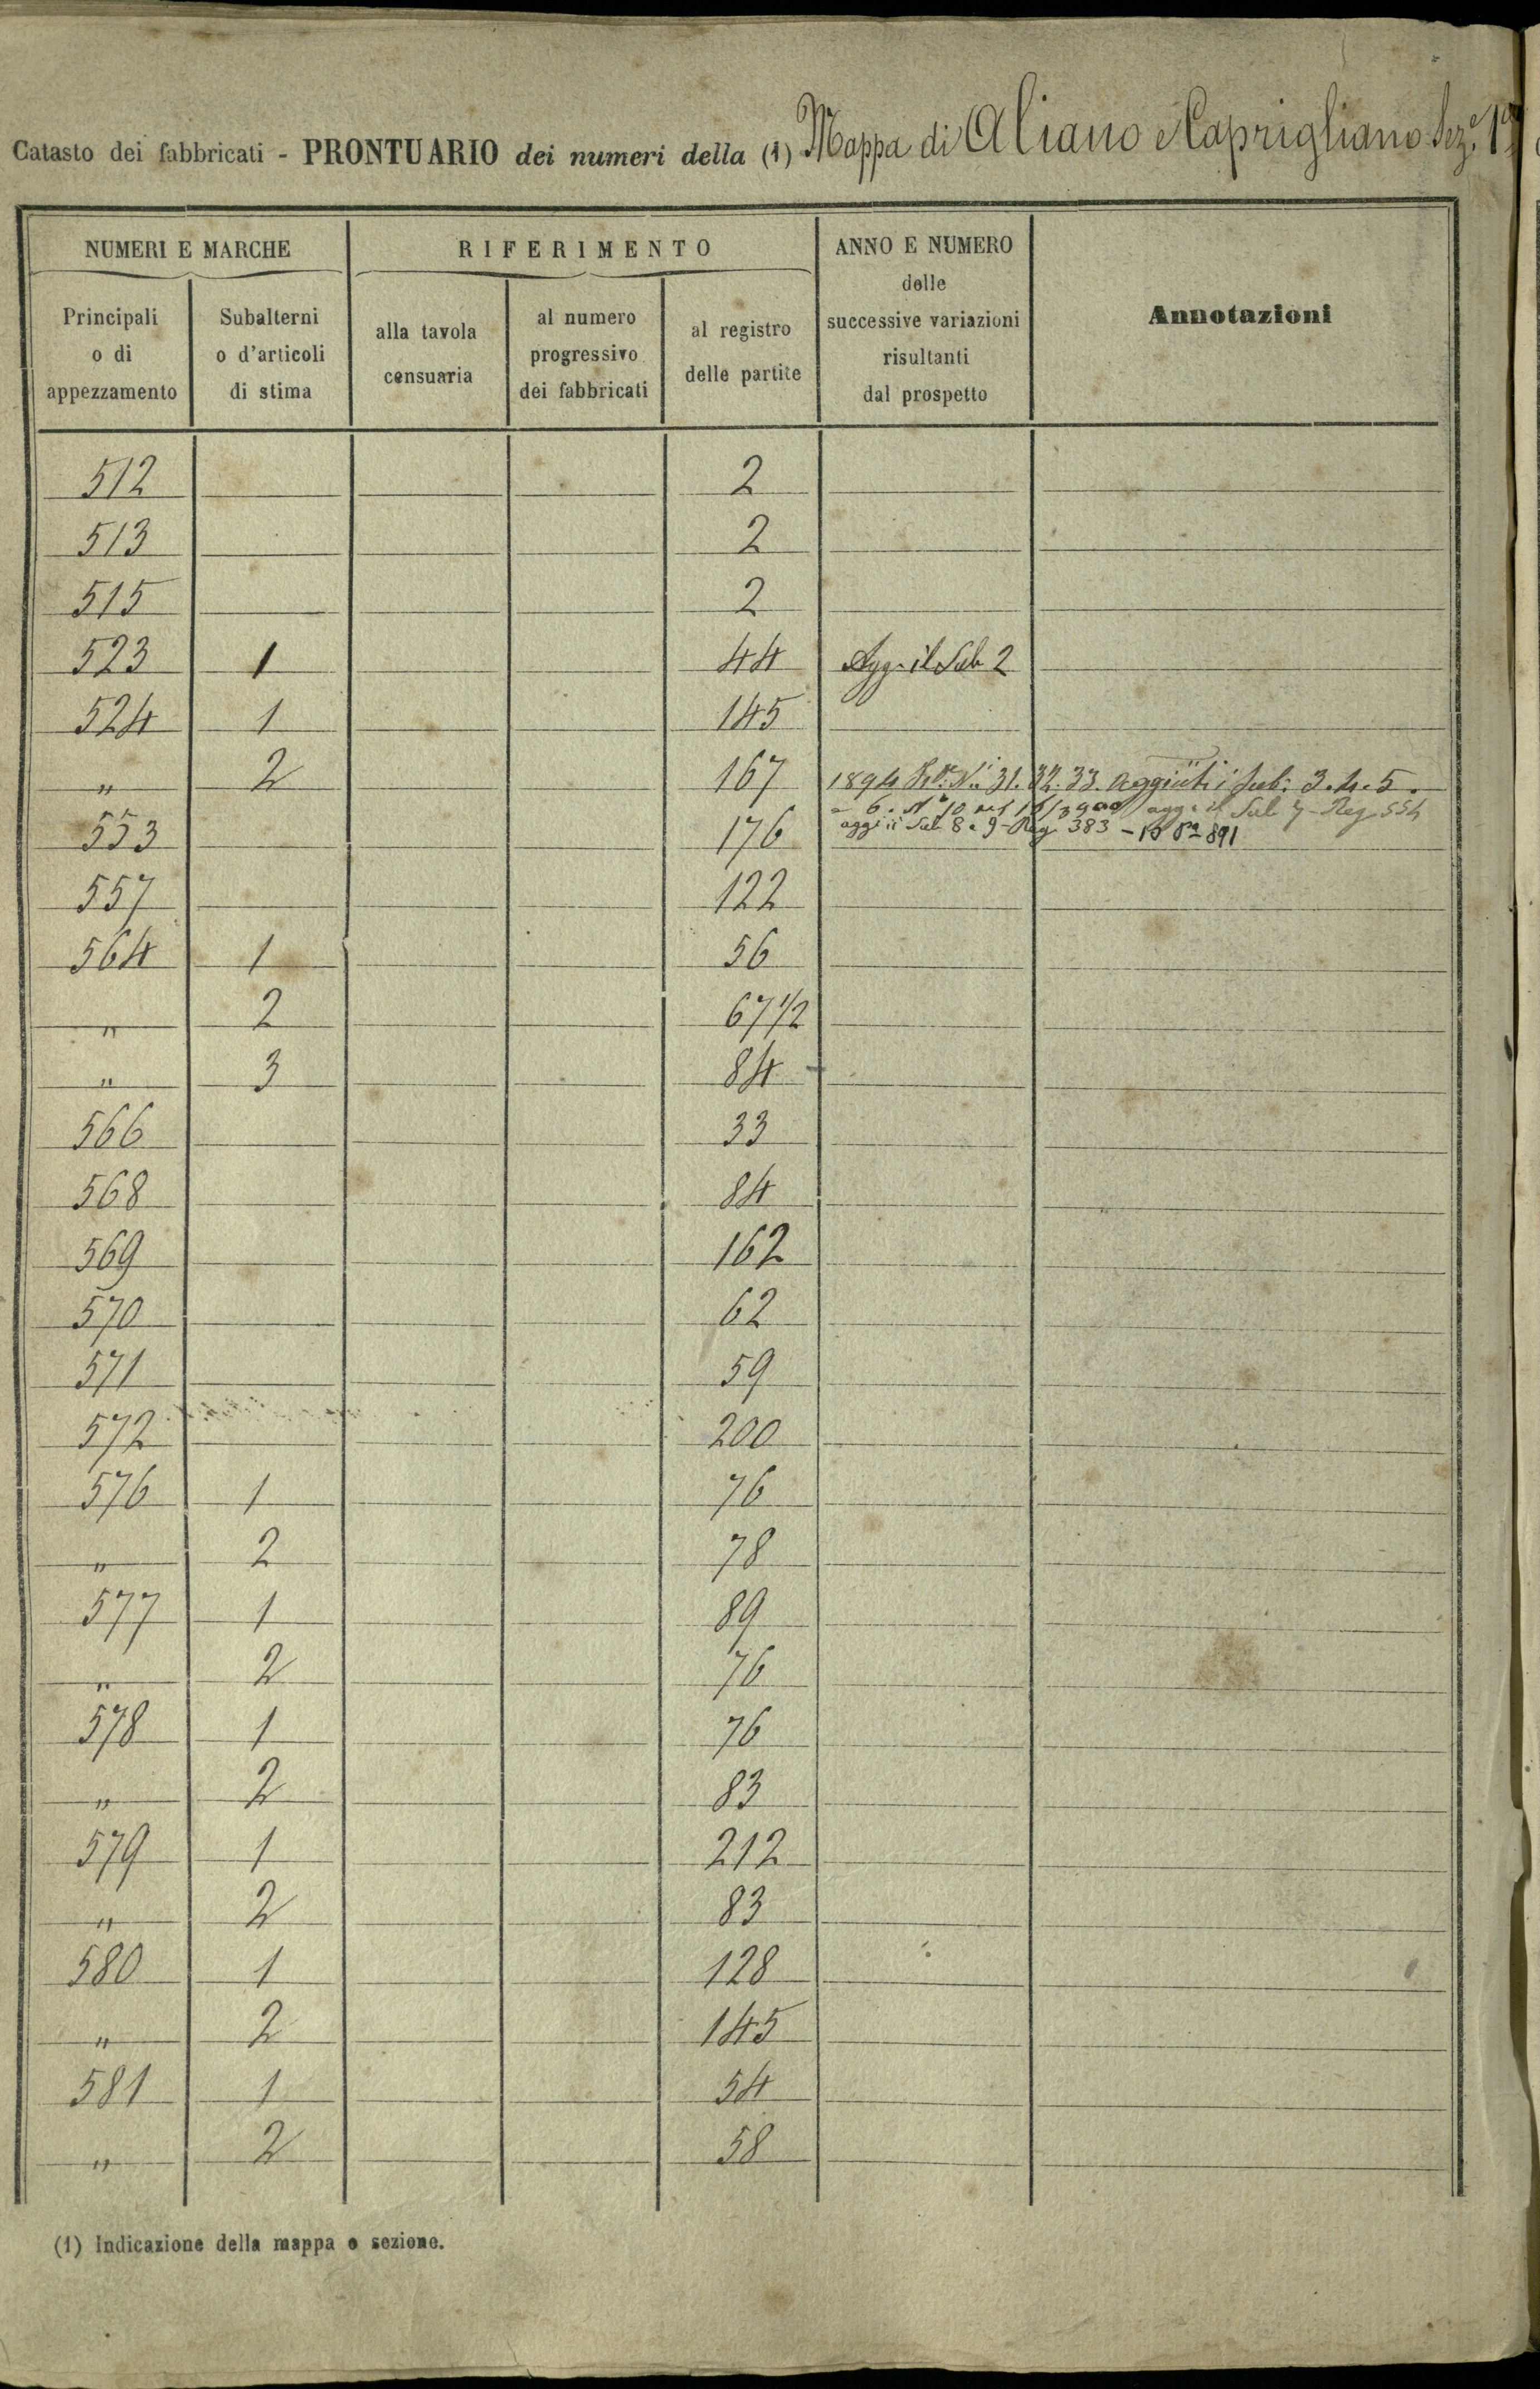 Catasto dei fabbricati - PRONTUARIO dei numeri della (1) Mappa di Aliano e Caprigliano Sez.e 1a
NUMERI E MARCHE
RIFERIMENTO
ANNO E NUMERO
delle
successive variazioni
risultanti
dal prospetto
Annotazioni
Principali
o di
appezzamento
Subalterni
o d'articoli
di stima
alla tavola
censuaria
al numero
progressivo
dei fabbricati
al registro
delle partite
512 2
513 2
515 2
523 1 44 Agg. il Sub 2
524 1 145
" 2 167 1894 N.i 31. 32. 33. aggiúti i sub: 3.4.5.
6. N° 10 agg. il Sub 7 - Reg 554
553 176 agg. ii Sub 8 e 9 - Reg 383 - 891
557 122
564 1 56
" 2 67 1/2
" 3 84
566 33
568 84
569 162
570 62
571 59
572 200
576 1 76
" 2 78
577 1 89
" 2 76
578 1 76
" 2 83
579 1 212
" 2 83
580 1 128
" 2 145
581 1 54
" 2 58
(1) Indicazione della mappa o sezione.